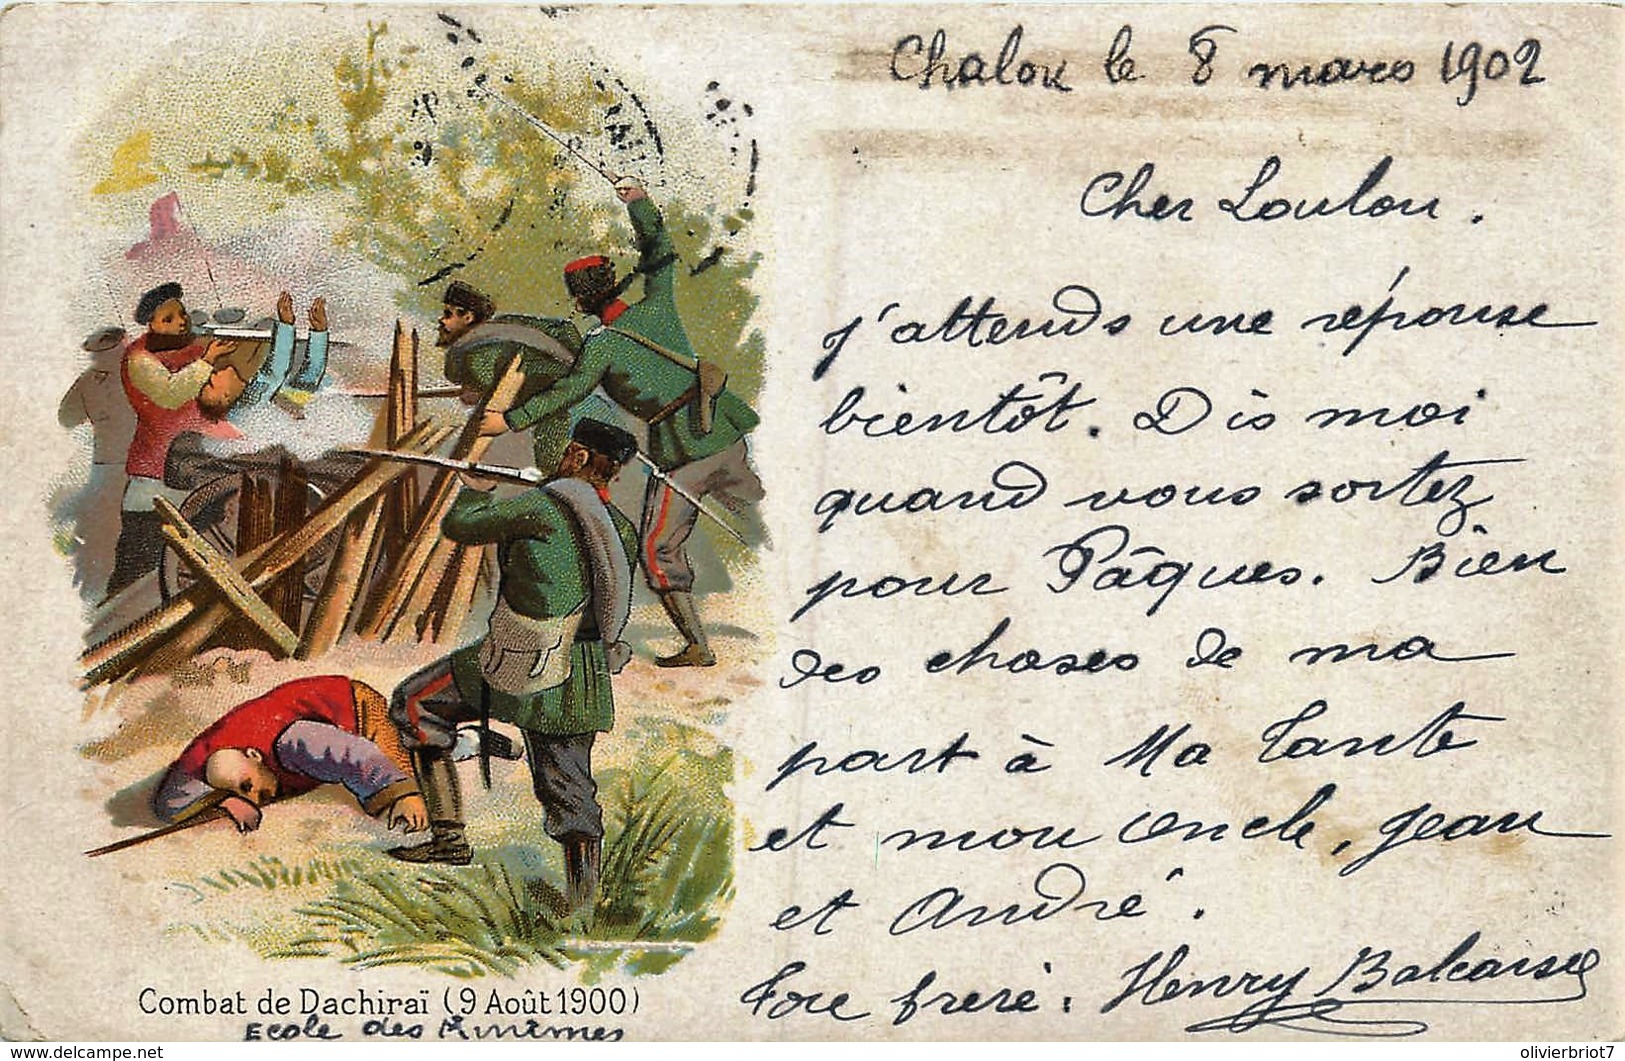 Chalon le 8 mars 1902
Cher Loulou.
j'attends une réponse
bientôt. Dis moi
quand vous sortez
pour Pâques. Bien
des choses de ma
part à Ma Tante
et mon oncle, jean
et André.
Ton frère. Henry
Combat de Dachiraï (9 Août 1900)
Ecole des Minimes
www.delcampe.net
olivierbriot7